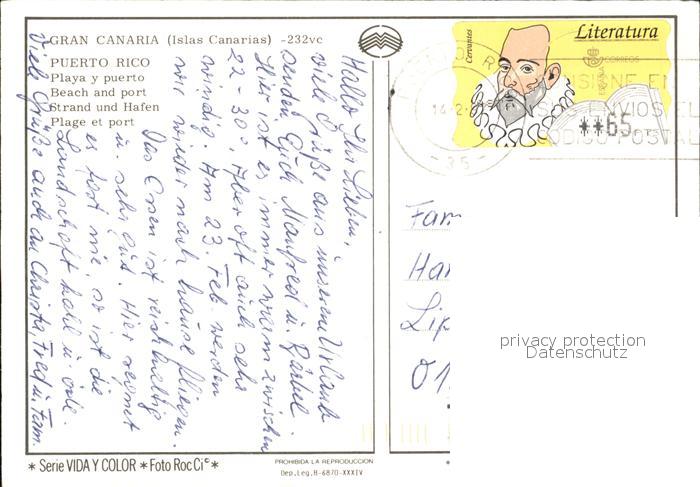 GRAN CANARIA (Islas Canarias) -232vc
PUERTO RICO
Playa y puerto
Beach and port
Strand und Hafen
Plage et port
Hallo Ihr Lieben,
viele Grüße aus unserem Urlaub
senden Euch Manfred u. Bärbel.
Hier ist es immer warm zwischen
22 - 30°, aber oft auch sehr
windig. Am 23. Feb. werden
wir wieder nach hause fliegen.
Das Essen ist reichhaltig
u. sehr gut. Hier regnet
es fast nie, so ist die
Landschaft kahl u. öde.
Viele Grüße auch an Christa, Fred u. Fam.
Cervantes
Literatura
CORREOS
**65
14-2-
-35-
CODIGO POSTAL
Fam
Ha
Lip
01
privacy protection
Datenschutz
* Serie VIDA Y COLOR * Foto Roc Ci© *
PROHIBIDA LA REPRODUCCION
Dep.Leg.B-6870-XXXIV